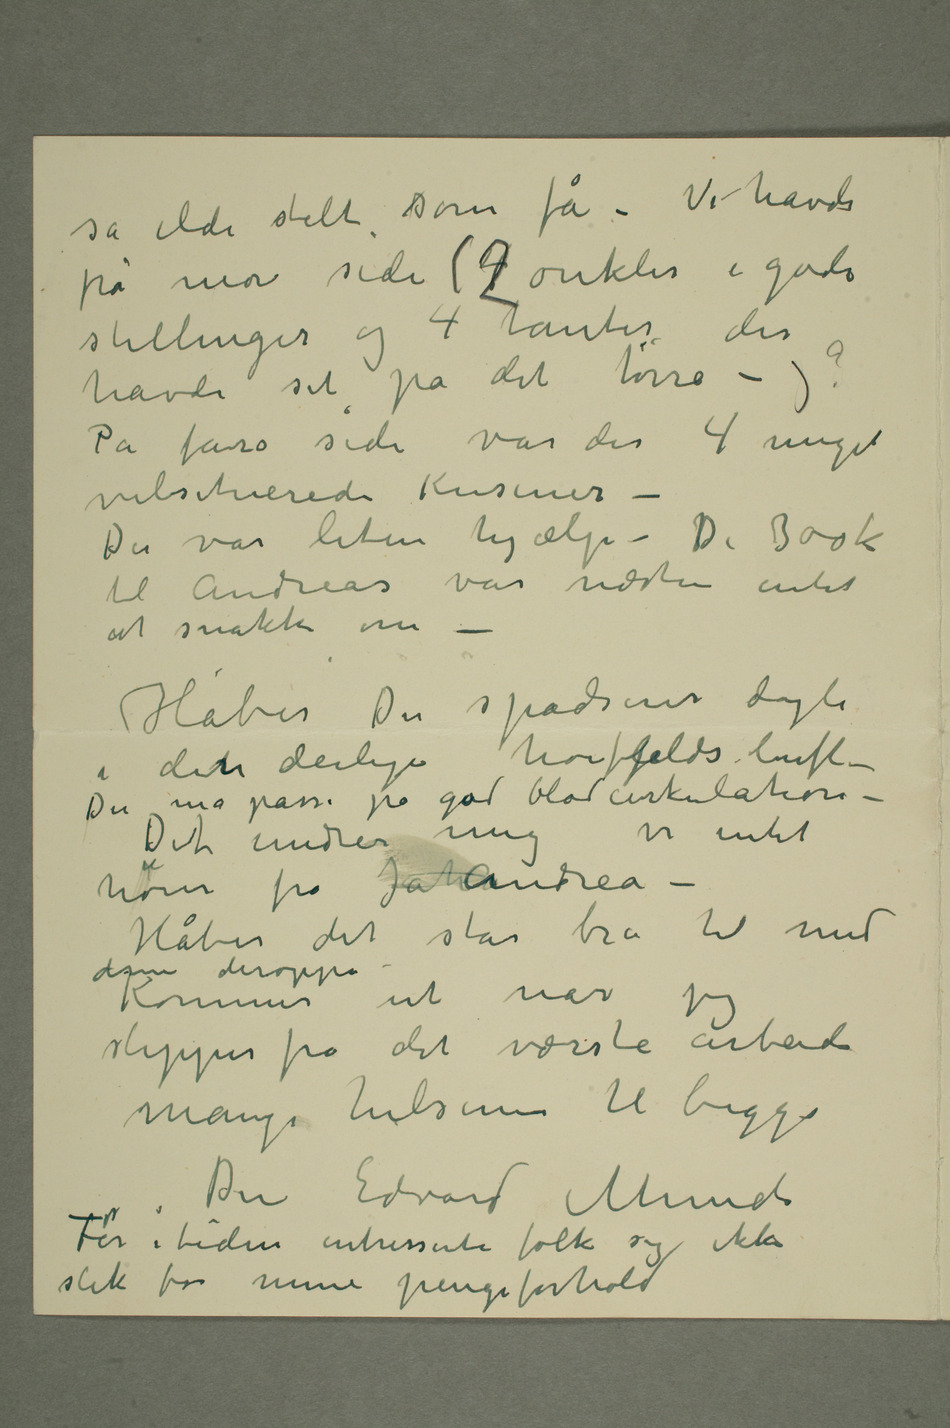 så ilde stelt som få – Vi havde
på mor side (2 onkler i gode
stillinger og 4 tanter der
havde set på det tørre – )?
På fars side var der 4 meget
velsituerede Kusiner –
Der var liten hjælp – De 300 k
til Andreas var næsten intet
at snakke om –
Håber Du spadserer dagli
i den deilige høifjelds luft –
Du må passe på god blodcirkulation –
Det undrer mig vi intet
hører fra Andrea –
Håber det står bra til med
dem deroppe –
Kommer ut når jeg
slipper fra det værste arbeide
Mange hilsener til begge
Din Edvard Munch
Før i tiden intresserte folk sig ikke
slik for mine pengeforhold